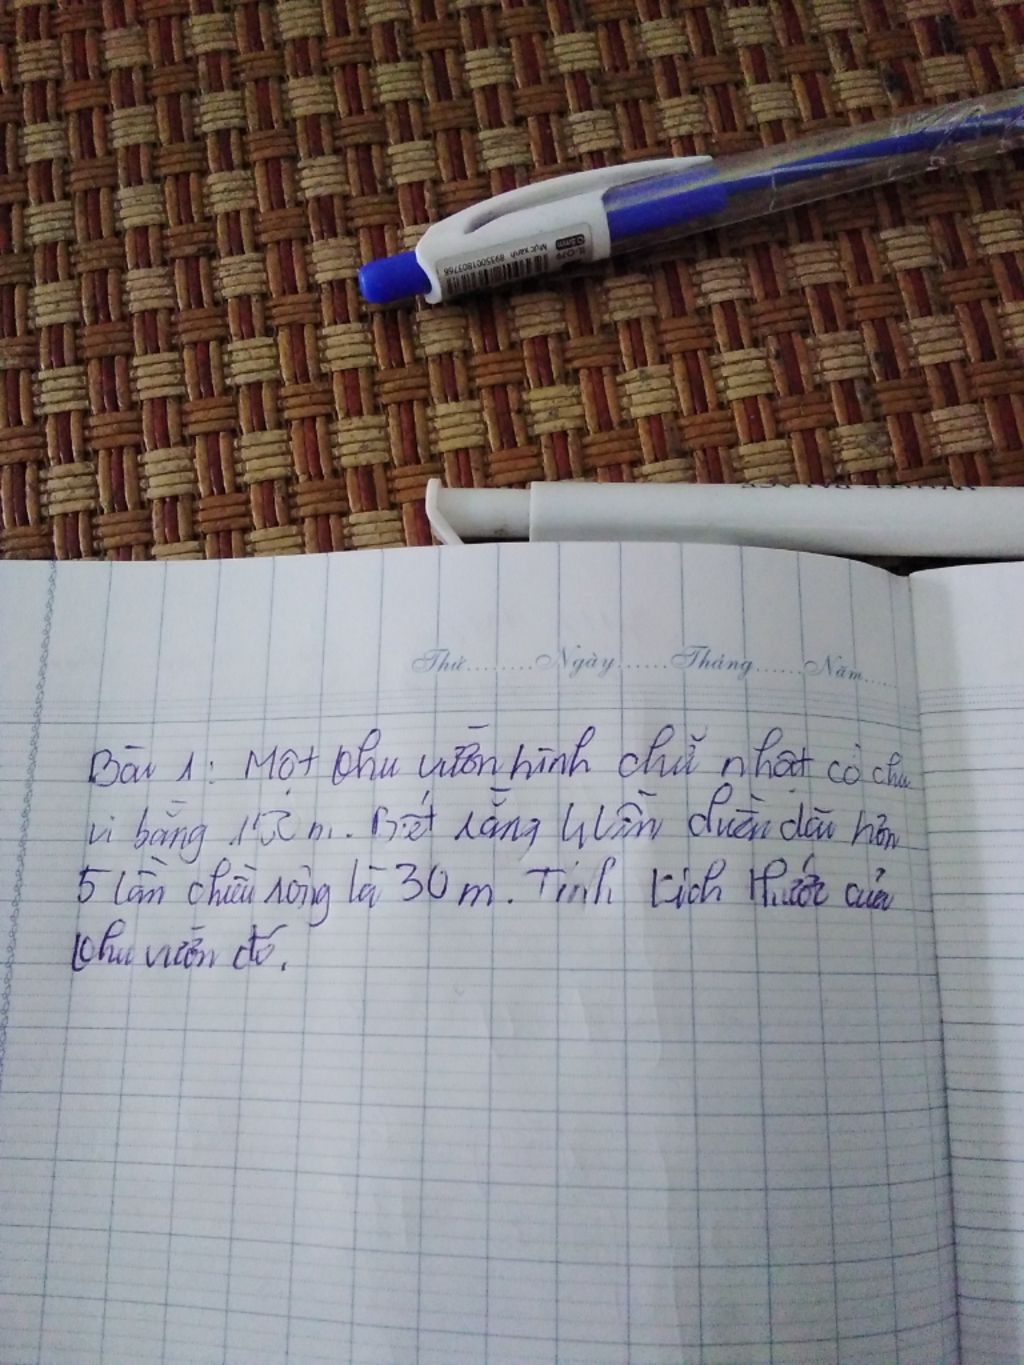 0.5mm TL-079
Mực xanh 8935001803768
Thứ.........Ngày......Tháng......Năm.....
Bài 1: Một khu vườn hình chữ nhật có chu
vi bằng m. Biết rằng 4 lần chiều dài hơn
5 lần chiều rộng là 30 m. Tính kích thước của
khu vườn đó.